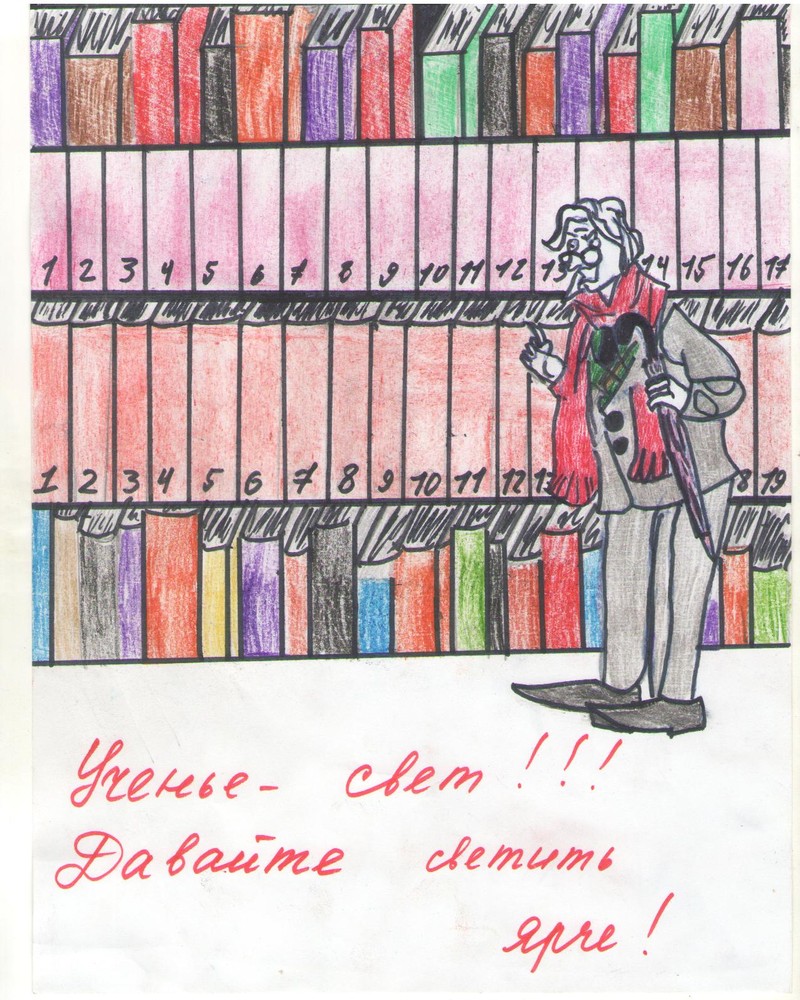 1 2 3 4 5 6 7 8 9 10 11 12 13 14 15 16 17
1 2 3 4 5 6 7 8 9 10 11 12 13 8 19
Ученье - свет!!!
Давайте светить
ярче!